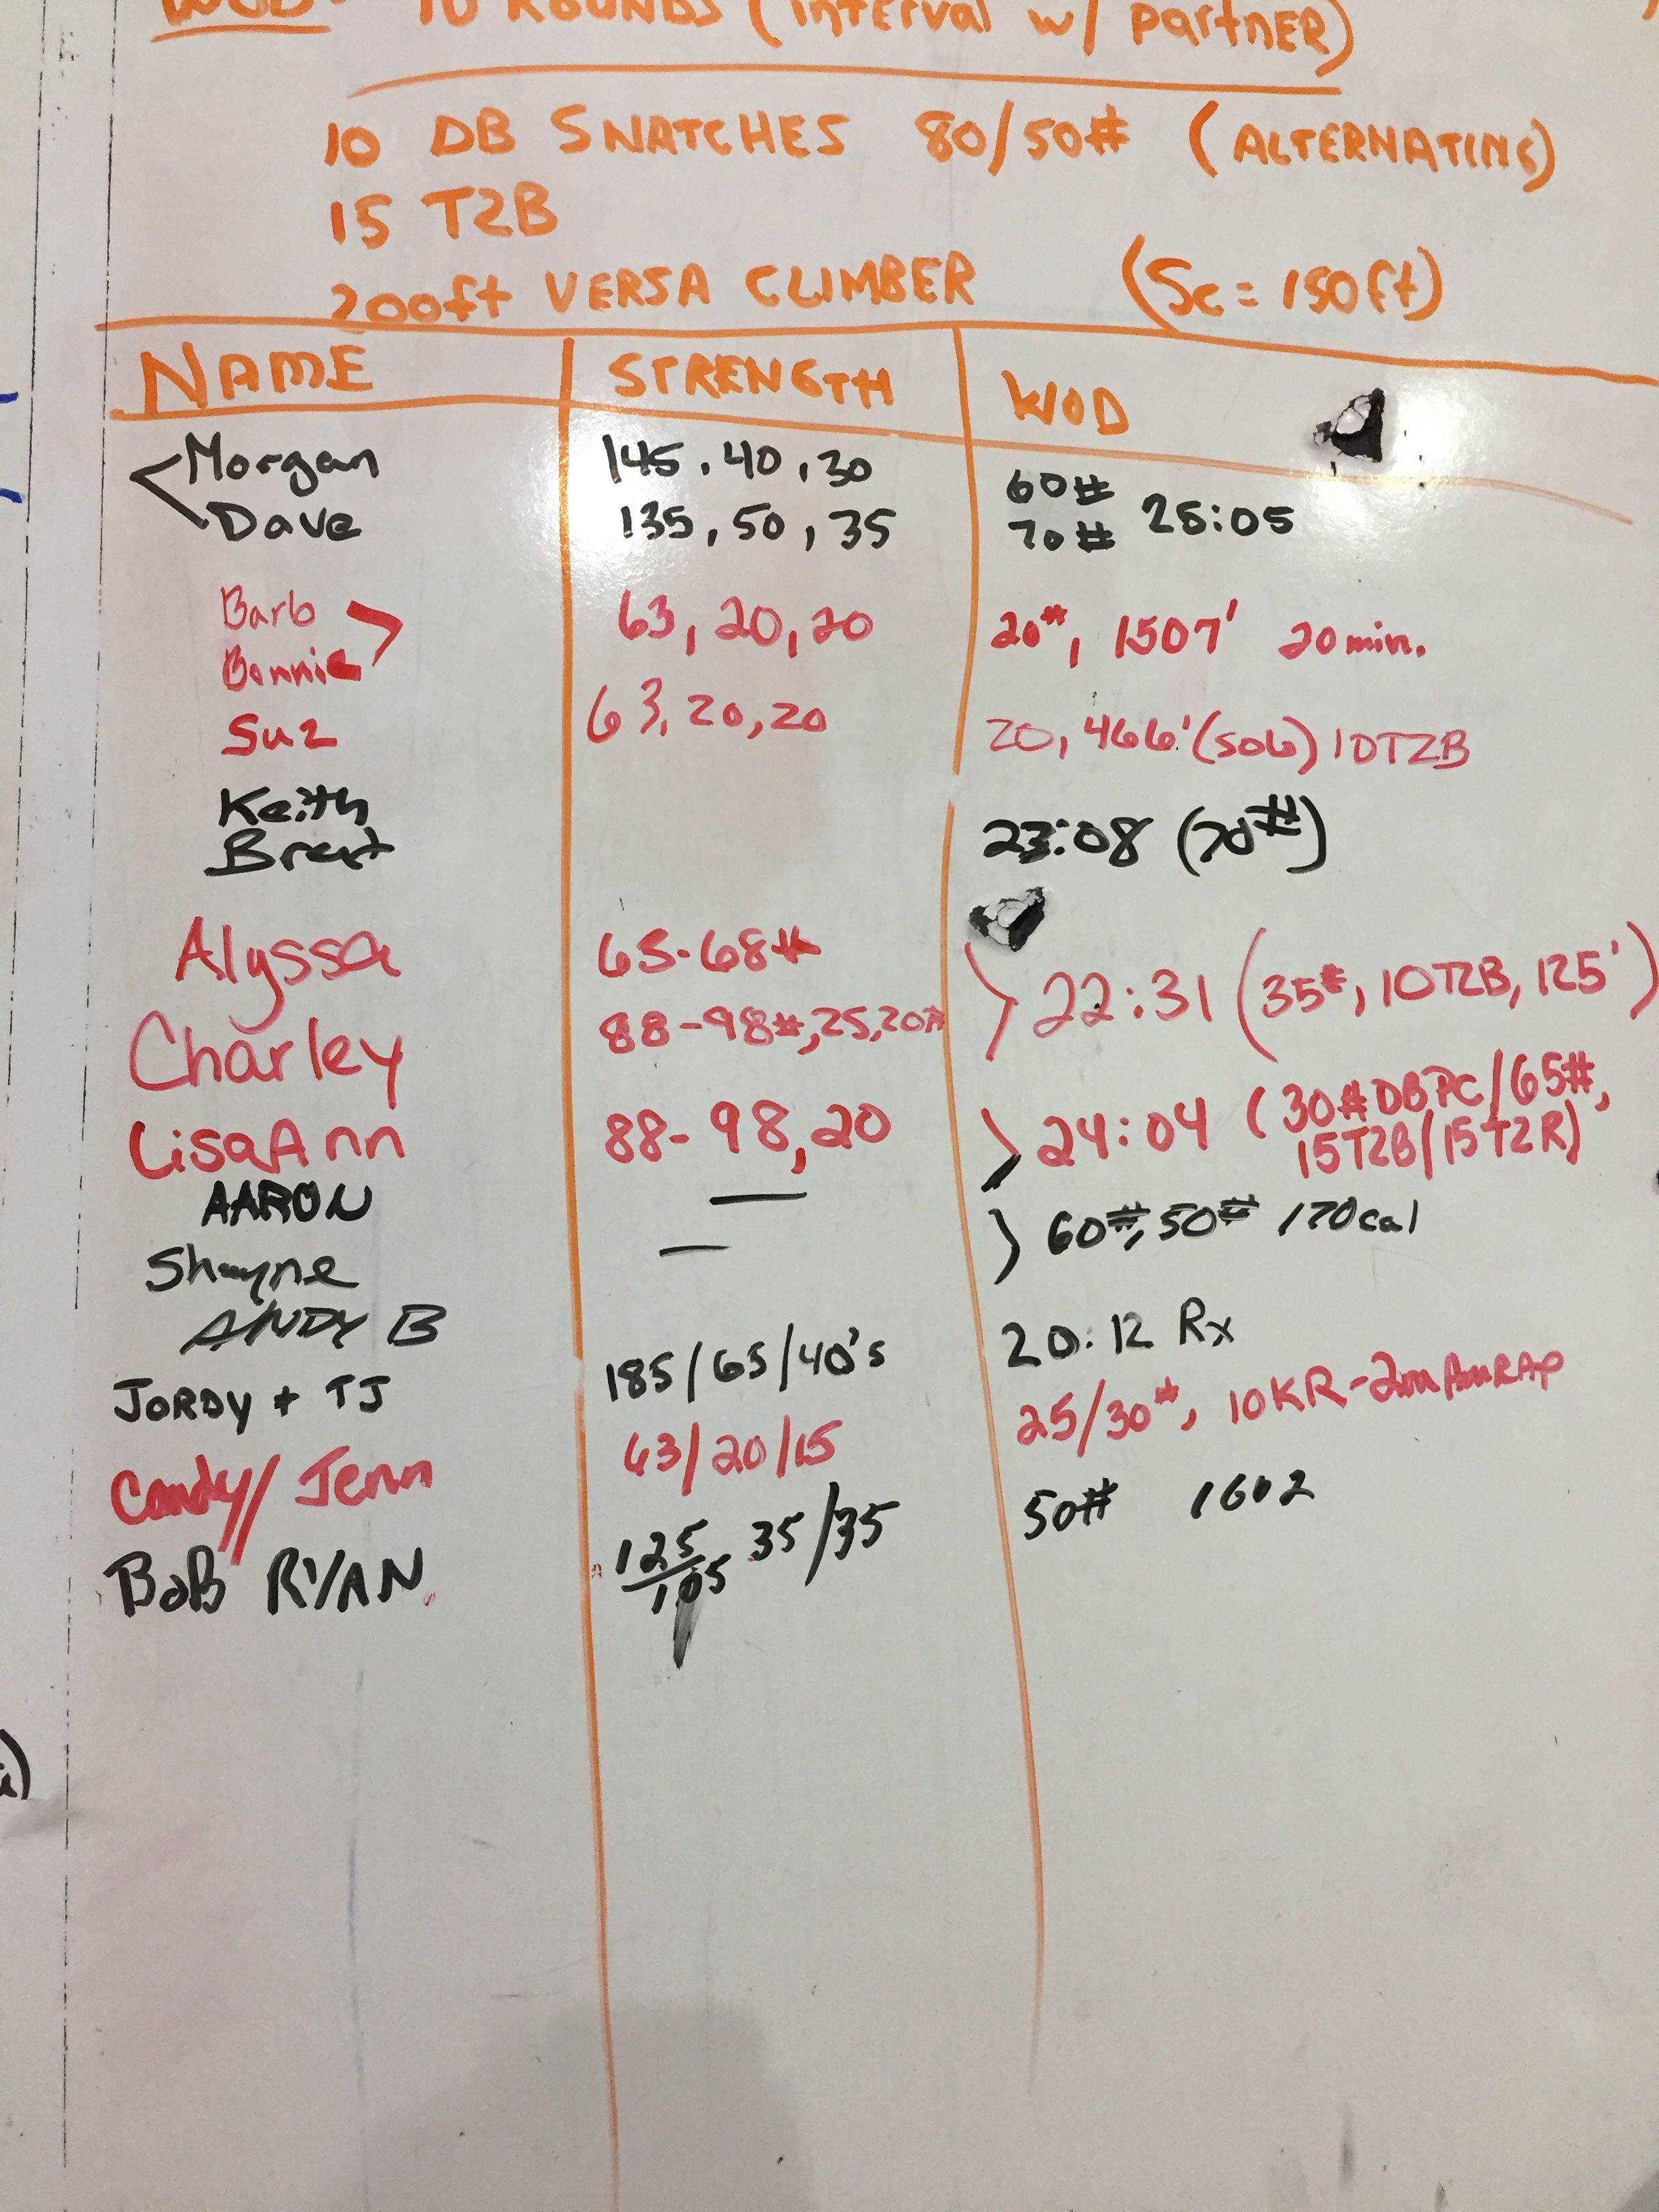 WOD: 10 ROUNDS (interval w/ partnER)
10 DB SNATCHES 80/50# (ALTERNATING)
15 T2B
200ft VERSA CLIMBER (Sc = 150ft)
NAME STRENGTH WOD
Morgan 145, 40, 30 60#
Dave 135, 50, 35 70# 25:05
Barb 63, 20, 20 20#, 1507' 20min.
Bonnie
Suz 63, 20, 20 20, 466' (506) 10T2B
Keith
Brent 23:08 (70#)
Alyssa 63-68# 22:31 (35#, 10T2B, 125')
Charley 88-98#, 25, 20#
LisaAnn 88-98, 20 24:04 (30#DBPC/65#,
15T2B/15T2R)
AARON — 60#, 50# 170cal
Shayne —
ANDY B
JORDY + TJ 185/65/40's 20:12 Rx
Candy/Jenn 63/20/15 25/30#, 10KR-2m AMRAP
BoB RYAN 125/105 35/35 50# 1602